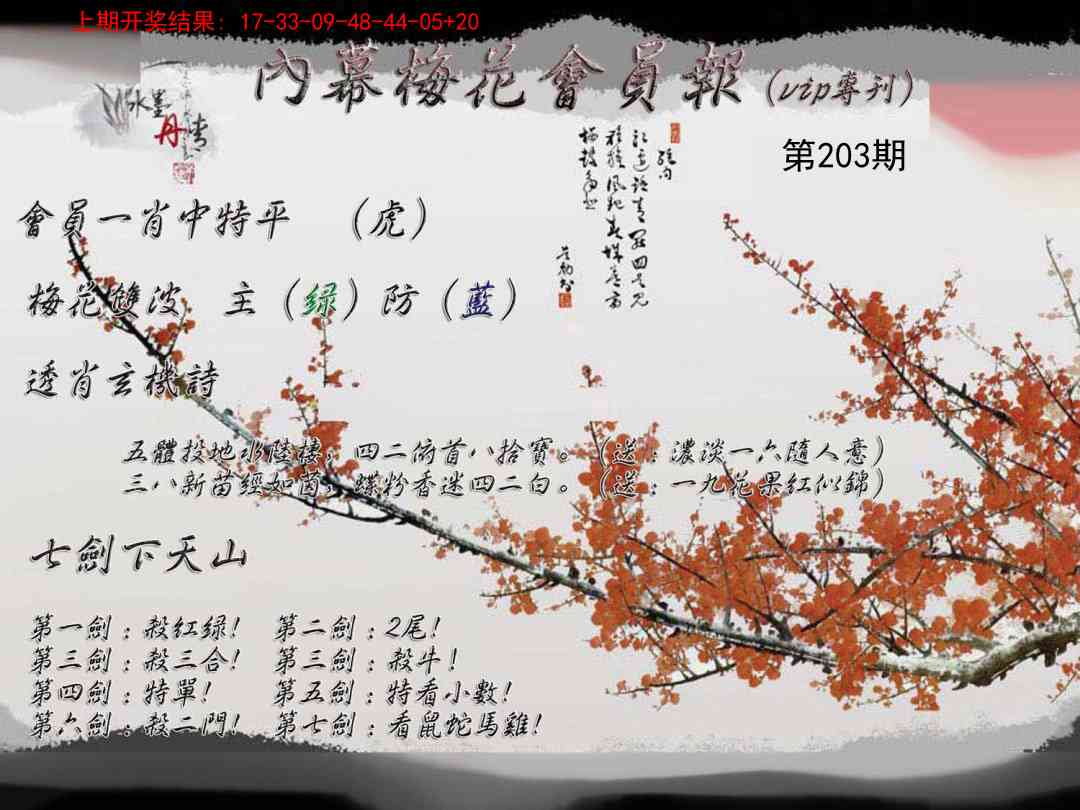 上期开奖结果: 17-33-09-48-44-05+20
內幕梅花會員報(vip專刊)
水墨
丹青
第203期
會員一肖中特平 (虎)
梅花雙波 主(绿)防(藍)
透肖玄機詩
五體投地水陸棲，四二俯首八拾寶。(送：濃淡一六隨人意)
三八新苗經如茵，蝶粉香迷四二白。(送：一九花果紅似錦)
七劍下天山
第一劍：殺紅绿! 第二劍：2尾!
第三劍：殺三合! 第三劍：殺牛!
第四劍：特單! 第五劍：特看小數!
第六劍：殺二門! 第七劍：看鼠蛇馬雞!